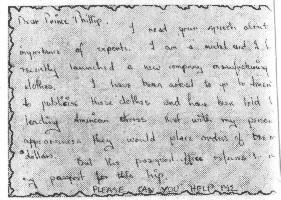 Dear Prince Phillip,
I need your speech about
importance of exports. I am a model and I
recently launched a new company manufacturing
clothes. I have been asked to go to
to publicise these clothes and have been told
leading American stores that with my
appearances they would place orders of
dollars. But the passport office refuses
my passport for this trip.
PLEASE CAN YOU HELP ME